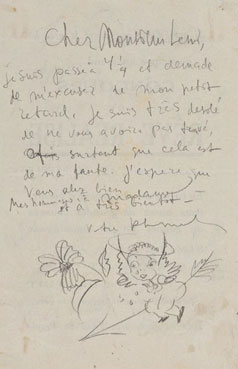 Cher Monsieur Leni,
je suis passé à 4 1/4 et demade
de m'excuser de mon petit
retard. Je suis très desolé
de ne vous avoir pas trouvé,
surtout que cela est
de ma faute. J'espère que
Vous allez bien
Mes hommages à Madame
et à très bientôt —
votre